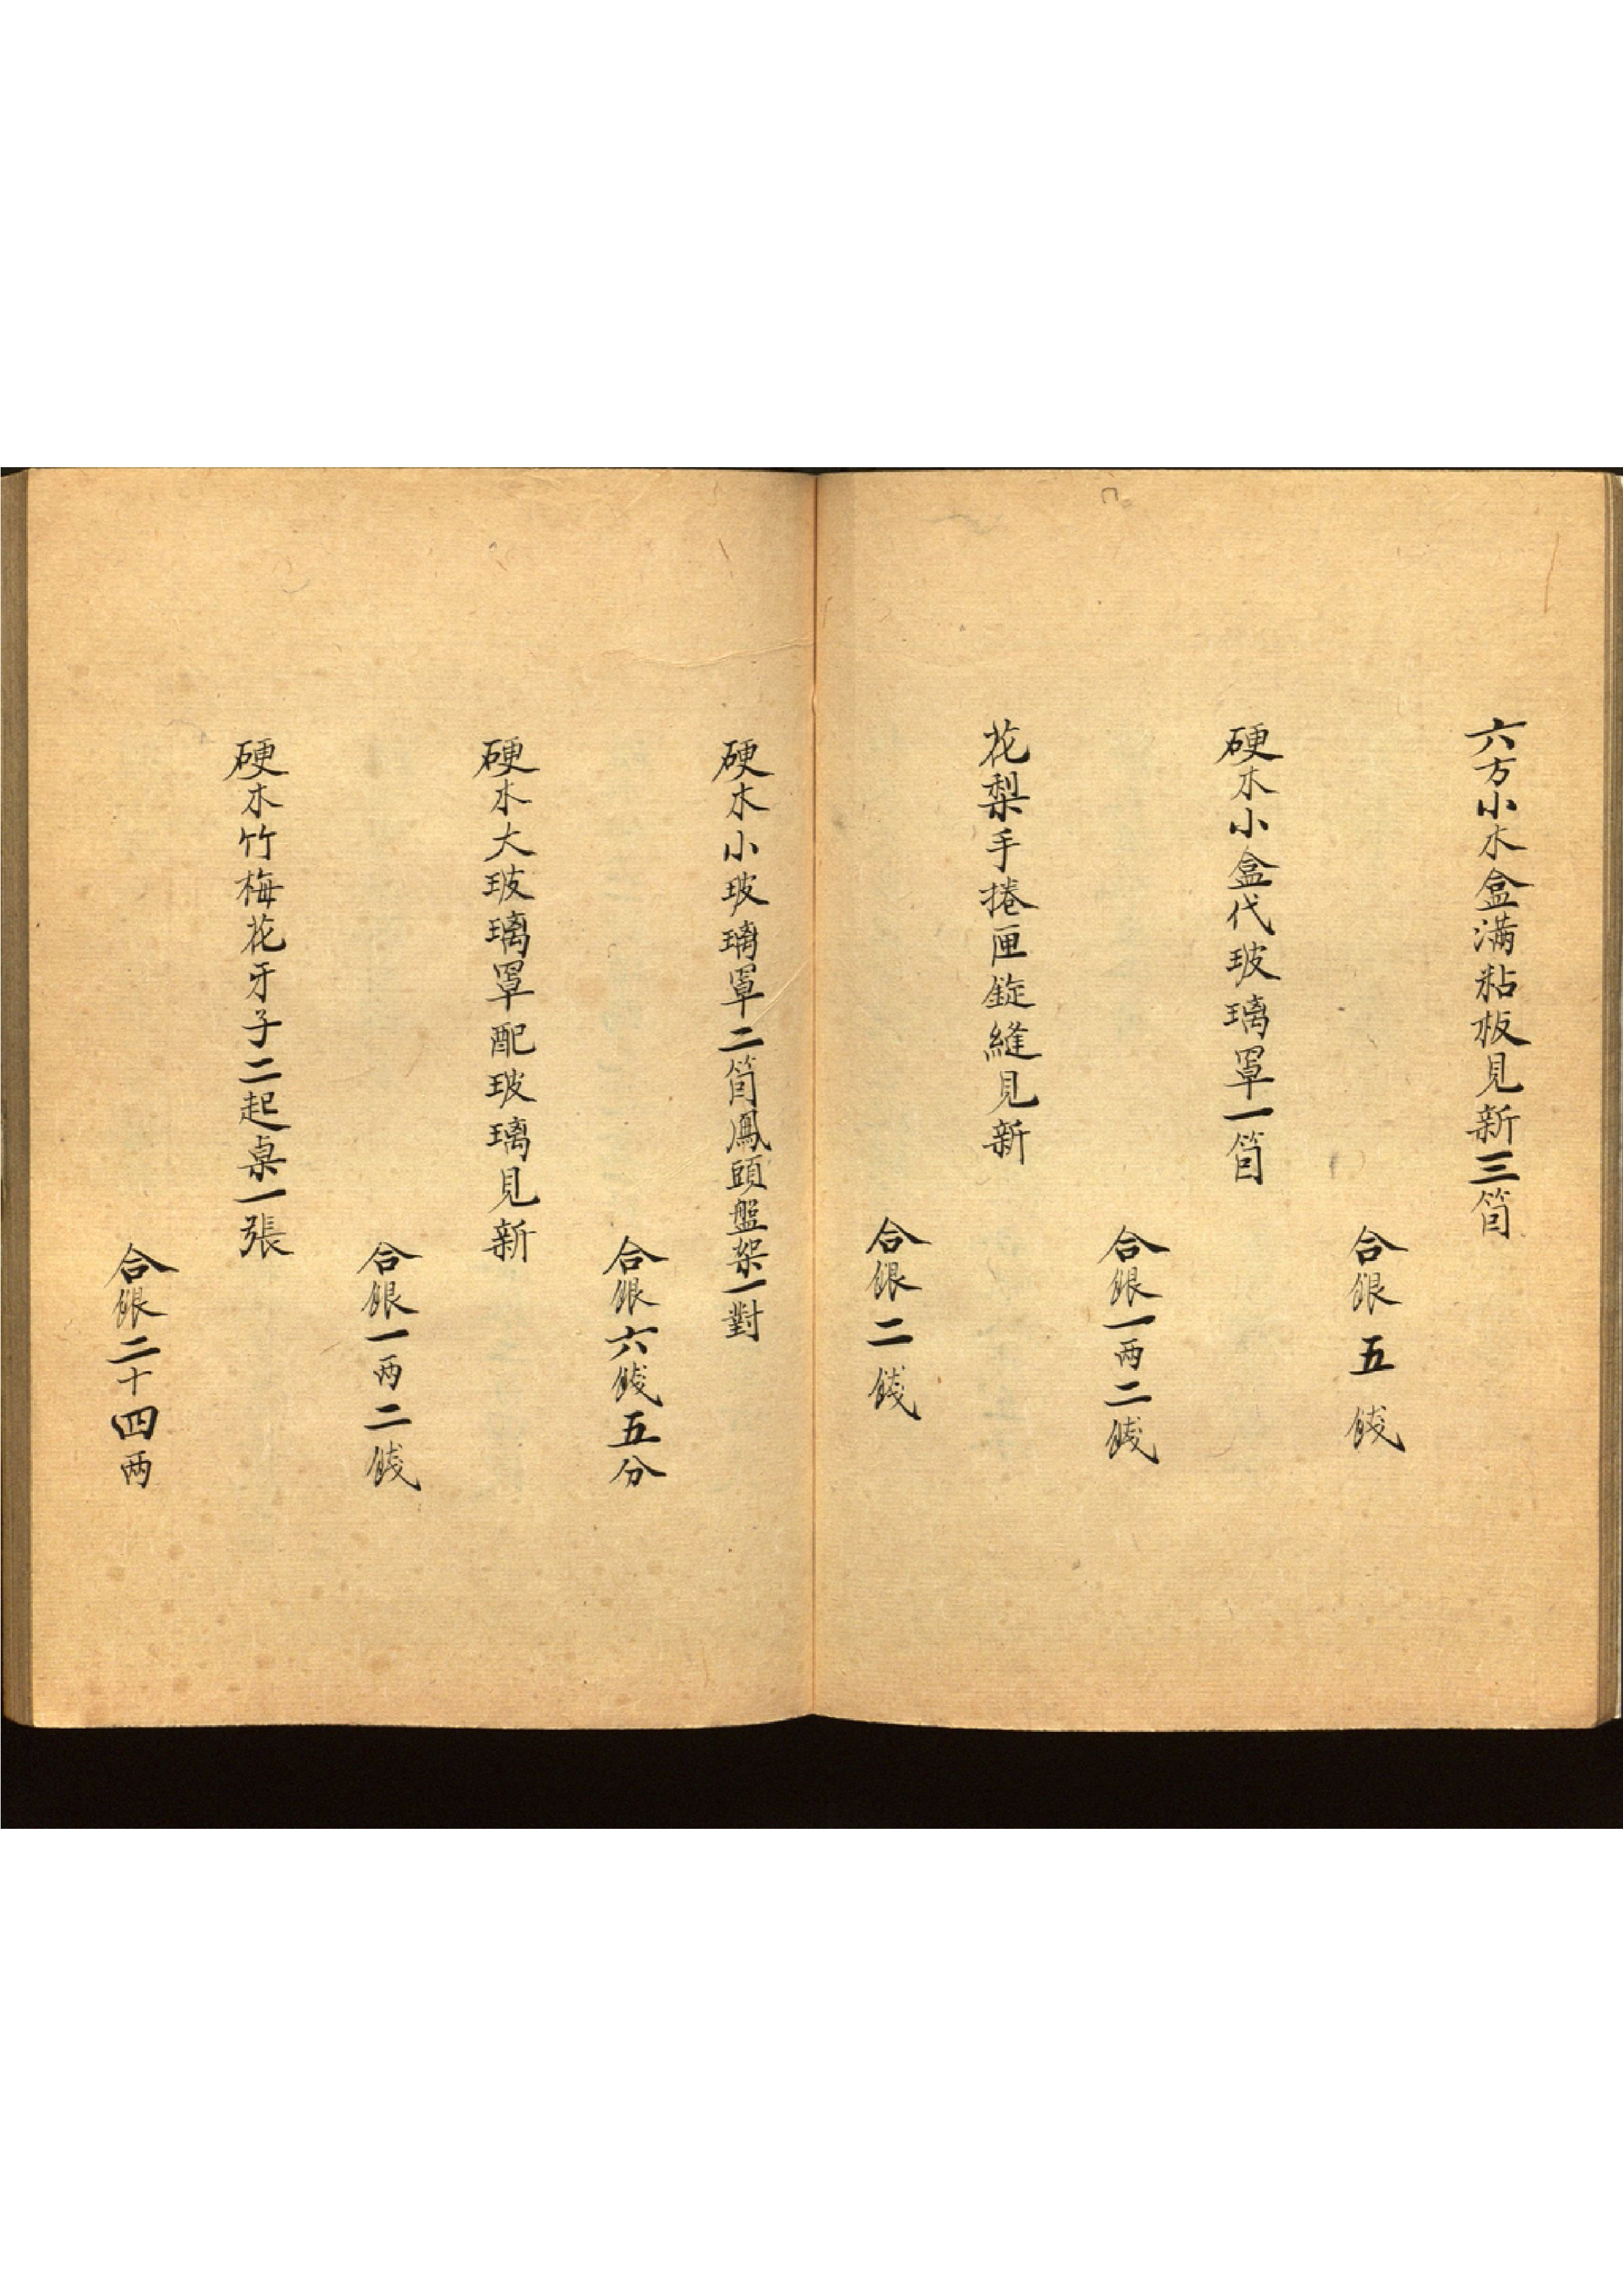 六方小木盒滿粘板見新三箇
合銀五錢
硬木小盒代玻璃罩一箇
合銀一两二錢
花梨手捲匣錠縫見新
合銀二錢
硬木小玻璃罩二箇鳳頭盤架一對
合銀六錢五分
硬木大玻璃罩配玻璃見新
合銀一两二錢
硬木竹梅花牙子二起桌一張
合銀二十四两